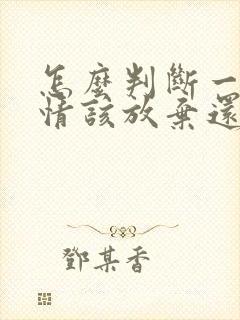 怎麼判斷一
情該放棄還
鄧某香